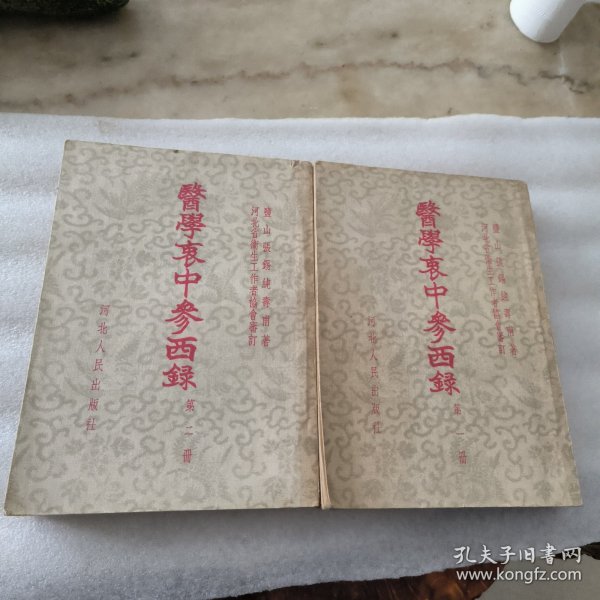 鹽山張錫純壽甫著
河北省衛生工作者協會審訂
醫學衷中參西錄
第二冊
河北人民出版社
鹽山張錫純壽甫著
河北省衛生工作者協會審訂
醫學衷中參西錄
第二冊
河北人民出版社
孔夫子旧书网
www.kongfz.com